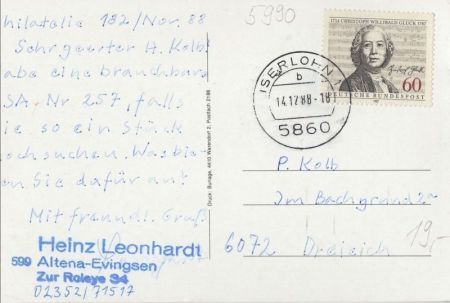 5990
Philatelie 182/Nov. 88
Sehrgeerter H. Kolb!
abe eine brauchbare
SA. Nr 257, falls
ie so ein Stück
och suchen. Was bie-
en Sie dafür an?
Mit freundl. Gruß
Heinz Leonhardt
599 Altena-Evingsen
Zur Roleye 34
02352/71517
Druck: Burlage, 4410 Warendorf 2, Postfach 2186
1714 CHRISTOPH WILLIBALD GLUCK 1787
60
DEUTSCHE BUNDESPOST
ISERLOHN 1
b
14.12.88-18
5860
P. Kolb
Im Bachgrund 2a
6072 Dreieich
19,-